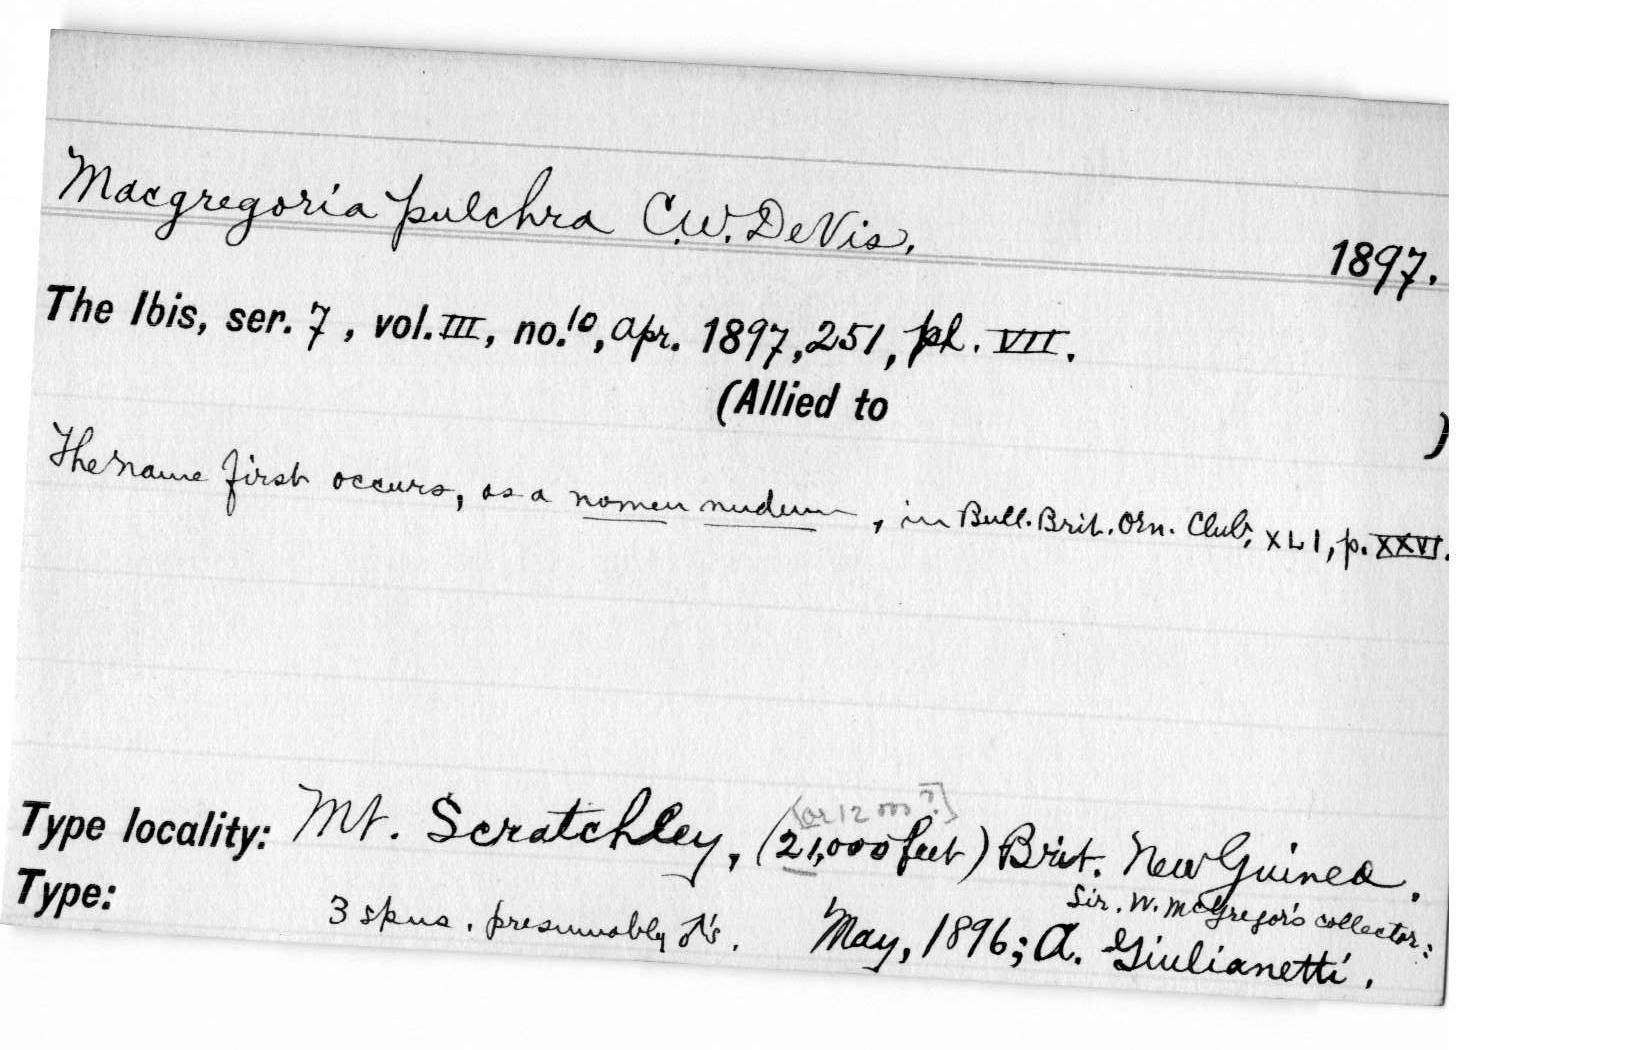 Macgregoria pulchra C.W. DeVis, 1897.
The Ibis, ser. 7, vol. III, no. 10, Apr. 1897, 251, pl. VII.
(Allied to )
The name first occurs, as a nomen nudum, in Bull. Brit. Orn. Club, XLI, p. XXVI.
[or 12 m?]
Type locality: Mt. Scratchley, (21,000 feet) Brit. New Guinea.
Sir. W. McGregor's collector:
Type: 3 spns. presumably ♂'s. May, 1896; A. Giulianetti.